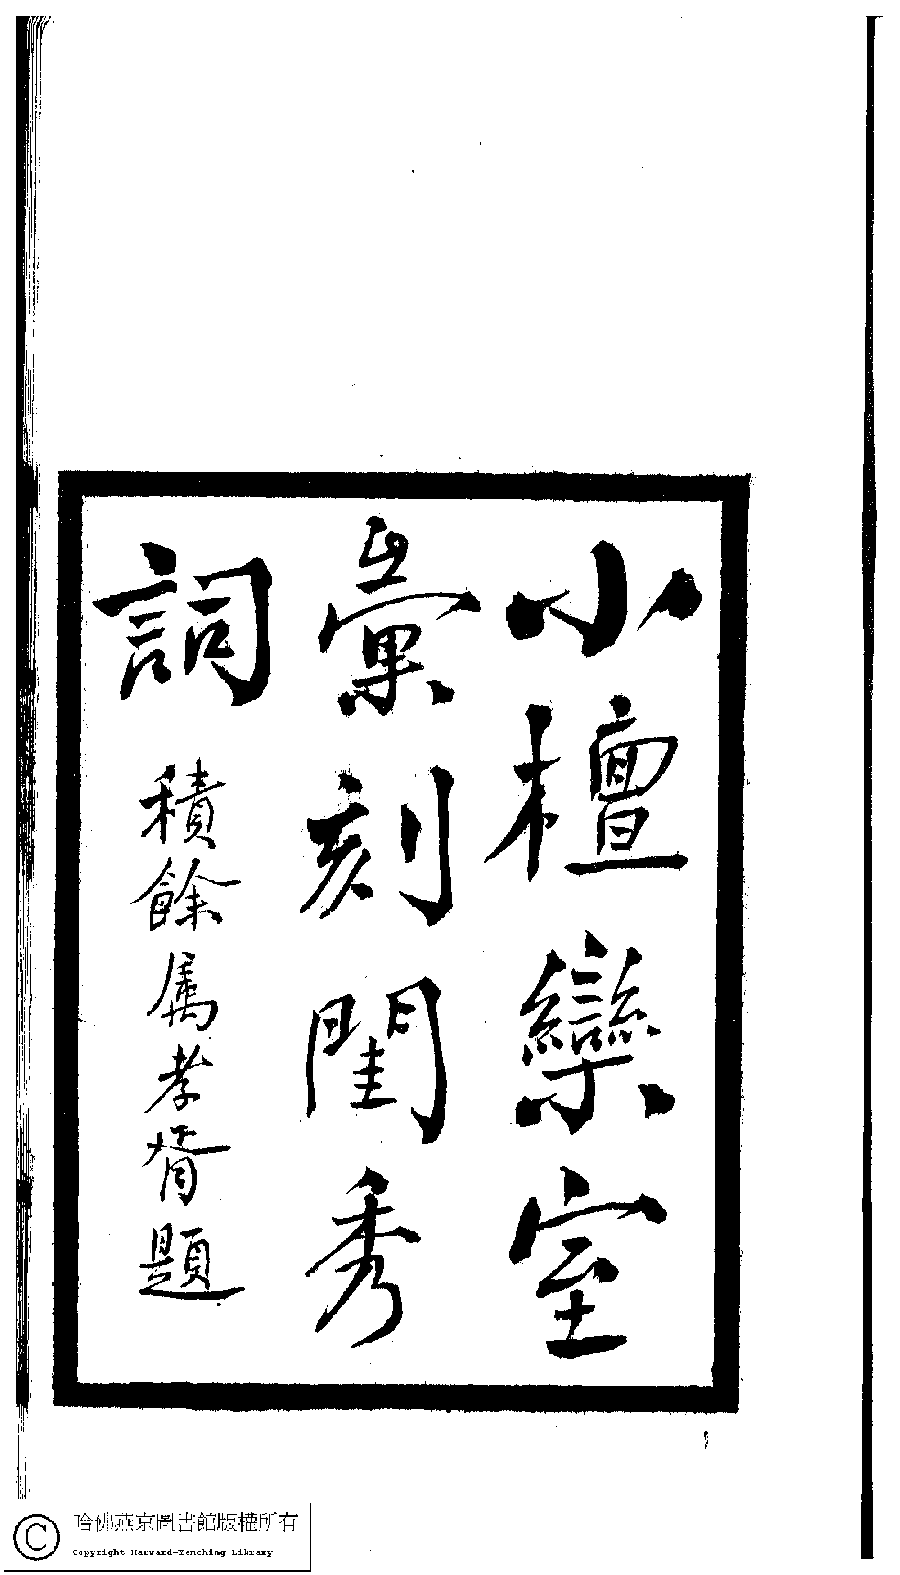 小檀欒室
彙刻閨秀
詞
積餘属孝胥題
哈佛燕京圖書館版權所有
Copyright Harvard-Yenching Library